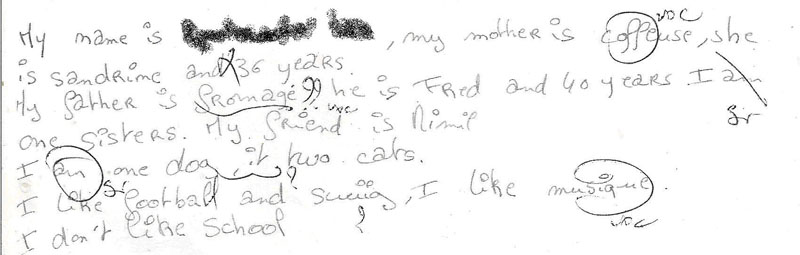 My name is , my mother is coffeuse, she voc
is sandrime and 36 years.
My father is fromage ?? he is Fred and 40 years. I am
one sisters. My friend is Nimil voc Sr
I am one dog, it two cats.
I like football and , I like musique. Sr ?
I don't like School ? voc